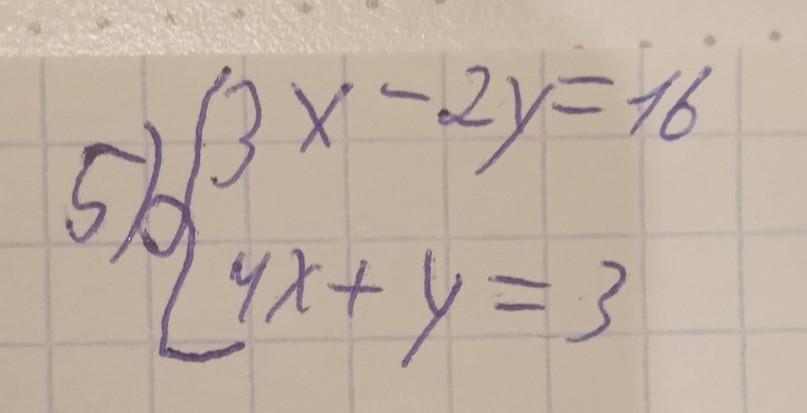 5) { 3x - 2y = 16
4x + y = 3